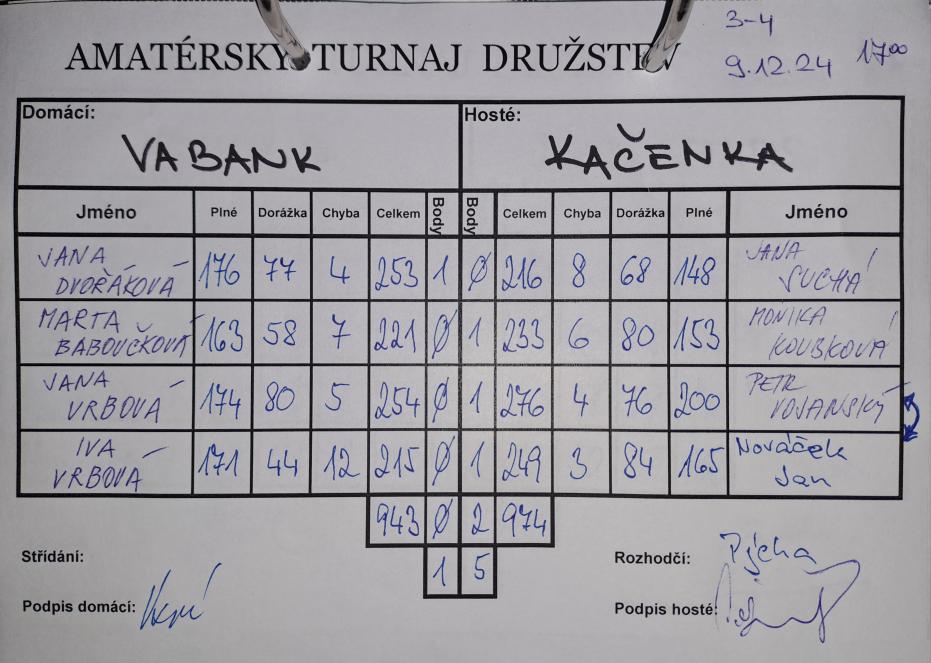 3-4
AMATÉRSKÝ TURNAJ DRUŽSTEV
9.12.24 17⁰⁰
Domácí: Hosté:
VABANK KAČENKA
Jméno Plné Dorážka Chyba Celkem Body Body Celkem Chyba Dorážka Plné Jméno
JANA DVOŘÁKOVÁ 176 77 4 253 1 Ø 216 8 68 148 JANA SUCHÁ
MARTA BABOUČKOVÁ 163 58 7 221 Ø 1 233 6 80 153 MONIKA KOUBKOVÁ
JANA VRBOVÁ 174 80 5 254 Ø 1 276 4 76 200 PETR VOJANSKÝ
IVA VRBOVÁ 171 44 12 215 Ø 1 249 3 84 165 Nováček Jan
943 Ø 2 974
1 5
Střídání: Rozhodčí: Pýcha
Podpis domácí: Podpis hosté: